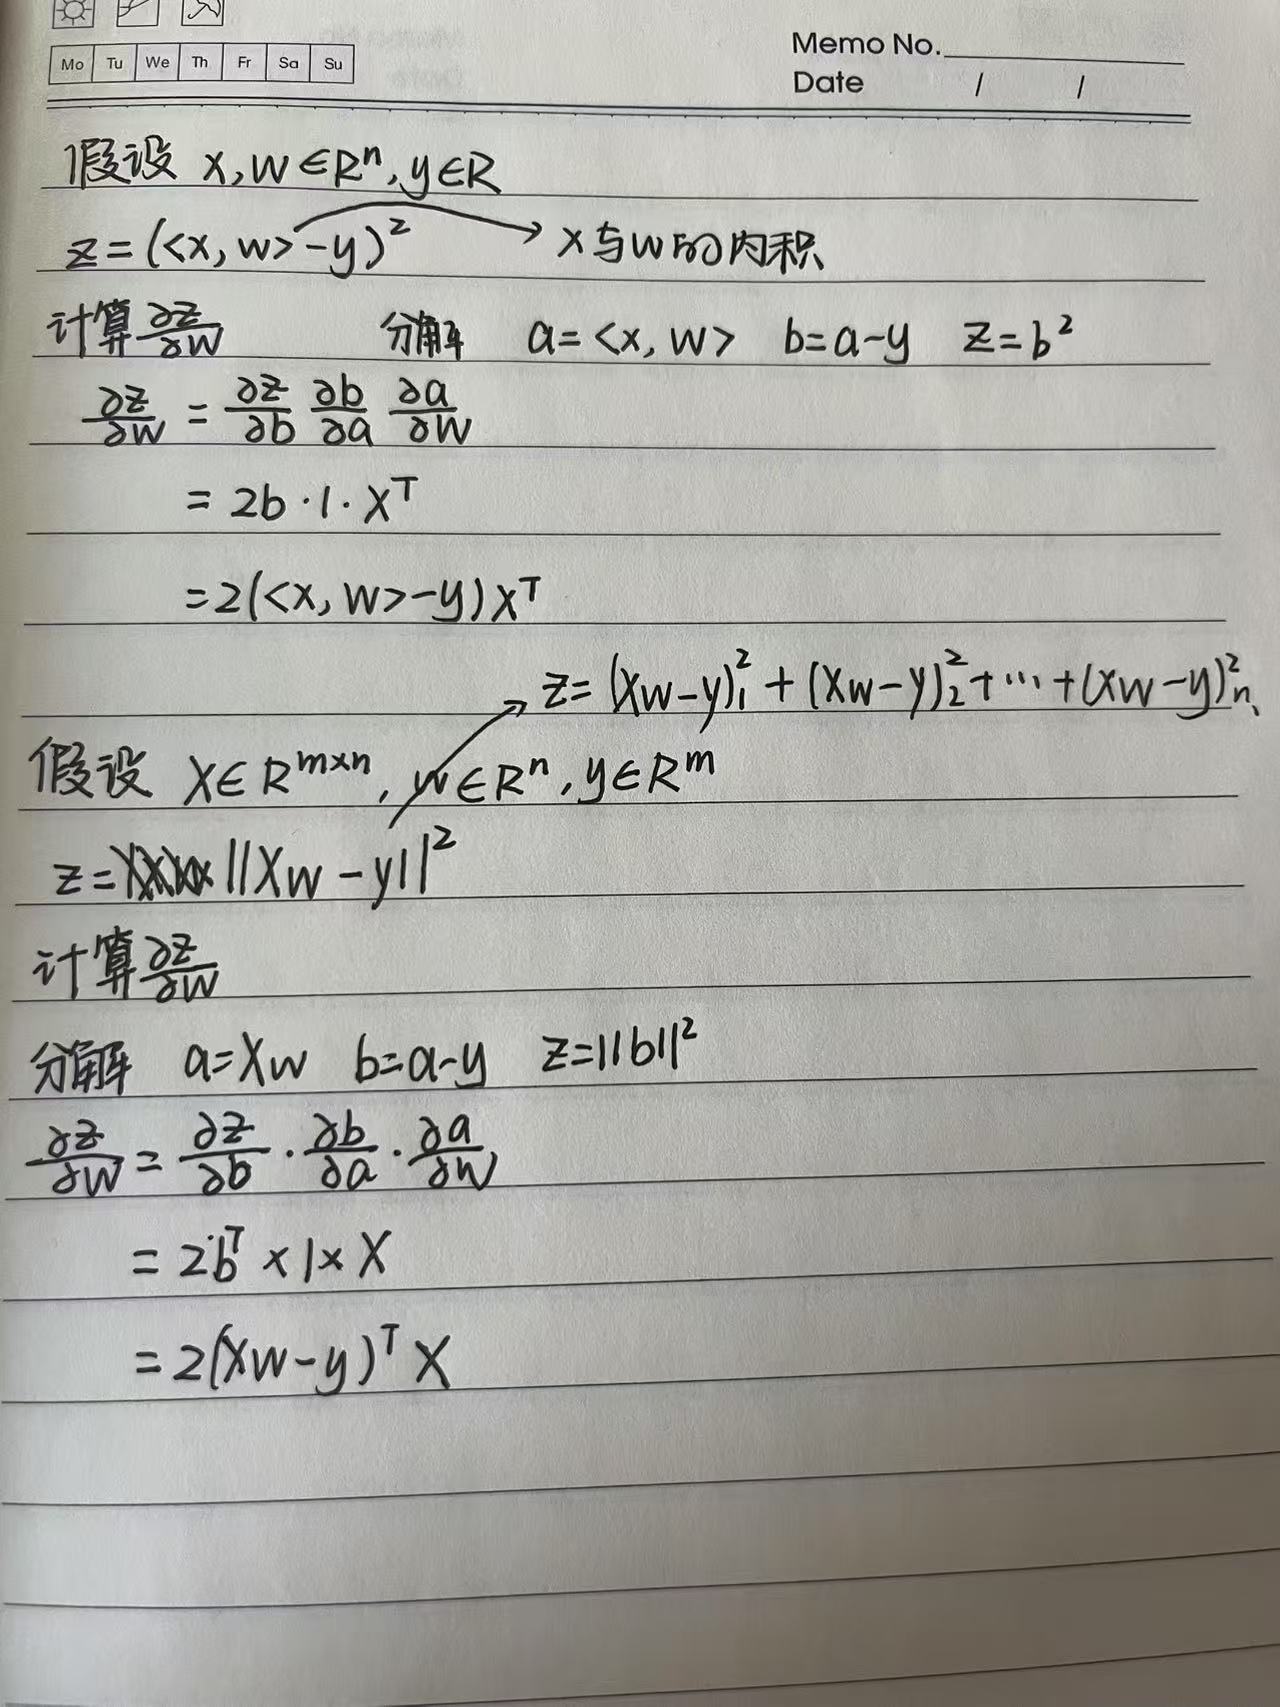 Mo Tu We Th Fr Sa Su
Memo No.
Date / /
假设 x,w∈Rⁿ,y∈R
z=(<x,w>-y)² → x与w的内积
计算∂z/∂w 分解 a=<x,w> b=a-y z=b²
∂z/∂w = ∂z/∂b ∂b/∂a ∂a/∂w
= 2b·1·xᵀ
=2(<x,w>-y)xᵀ
z=(Xw-y)₁²+(Xw-y)₂²+…+(Xw-y)ₙ²
假设 X∈Rᵐˣⁿ,w∈Rⁿ,y∈Rᵐ
z=||Xw-y||²
计算∂z/∂w
分解 a=Xw b=a-y z=||b||²
∂z/∂w = ∂z/∂b·∂b/∂a·∂a/∂w
= 2bᵀ×1×X
= 2(Xw-y)ᵀX